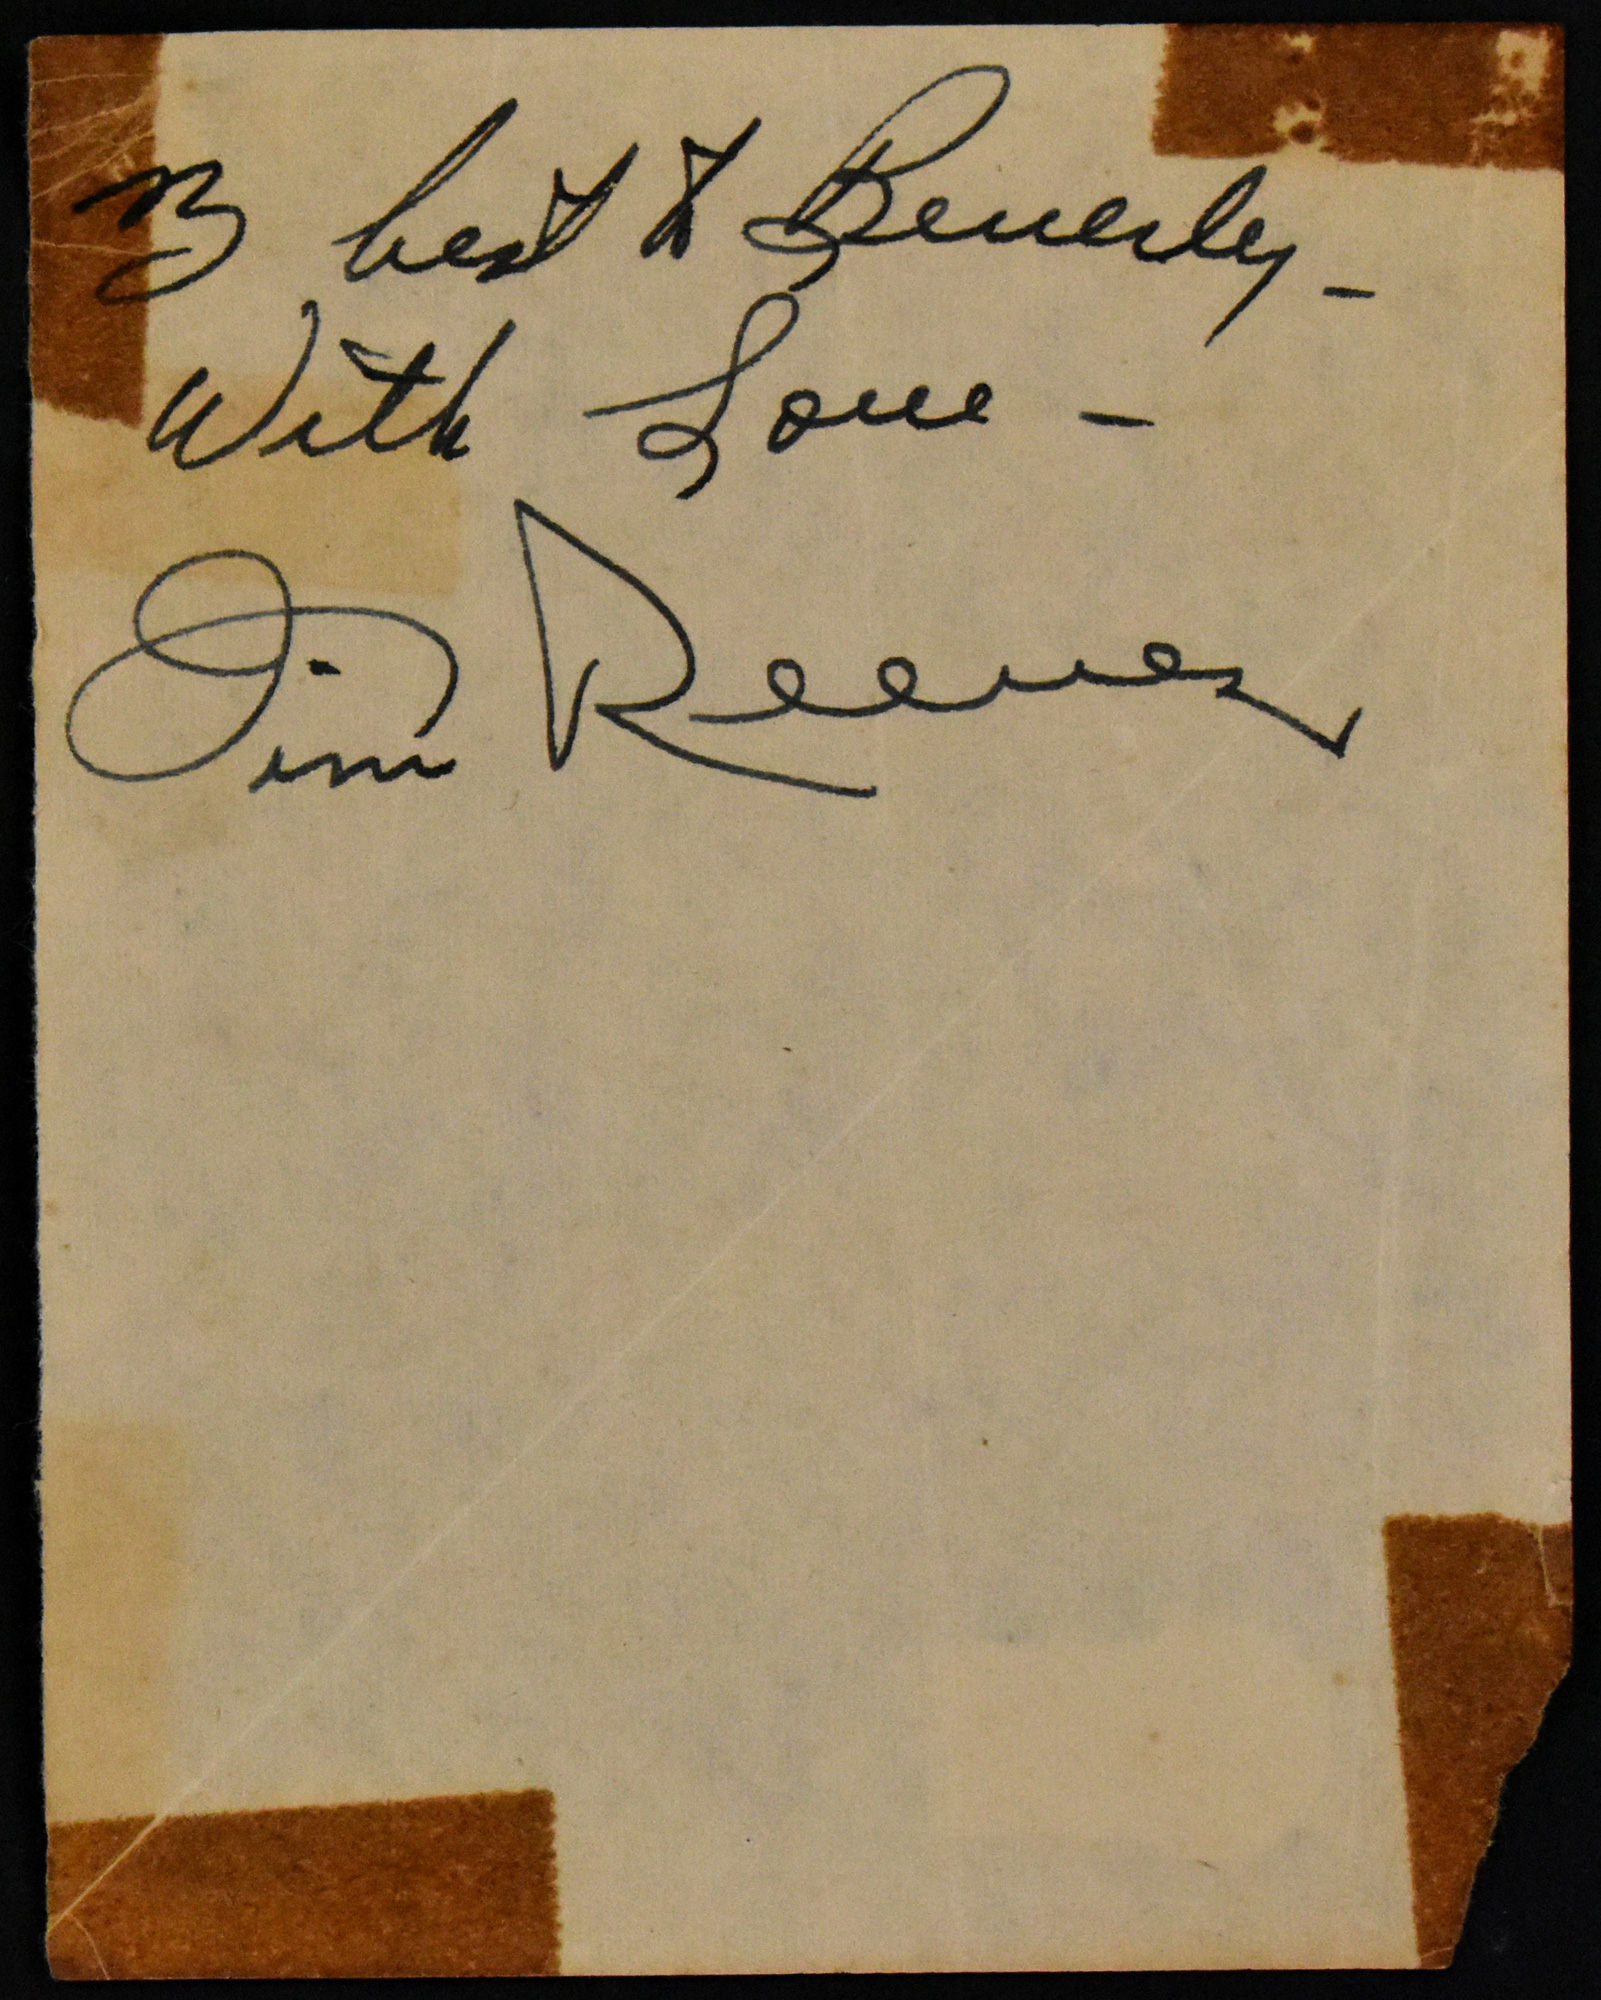 My best to Beverly –
With Love –
Jim Reeves